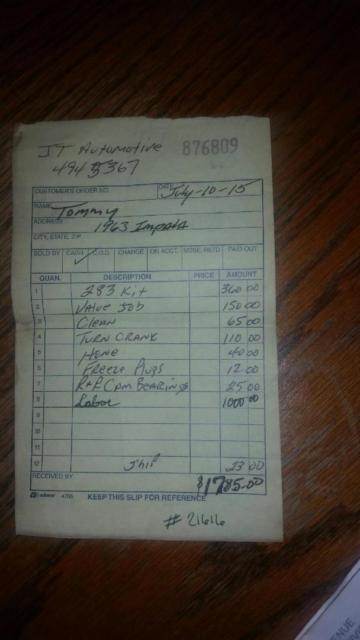 JT Automotive 876809
494 5367
CUSTOMER'S ORDER NO. DATE July-10-15
NAME Tommy
ADDRESS 1963 Impala
CITY, STATE, ZIP
SOLD BY CASH ✓ C.O.D. CHARGE ON ACCT. MDSE. RETD PAID OUT
QUAN. DESCRIPTION PRICE AMOUNT
1 283 Kit 360 00
2 Valve Job 150 00
3 Clean 65 00
4 Turn Crank 110 00
5 Hone 40 00
6 Freeze Plugs 12 00
7 R+R Cam Bearings 25 00
8 Labor 1000 00
9
10
11
12 Ship 23 00
RECEIVED BY $1785.00
adams 4705 KEEP THIS SLIP FOR REFERENCE
# 21616